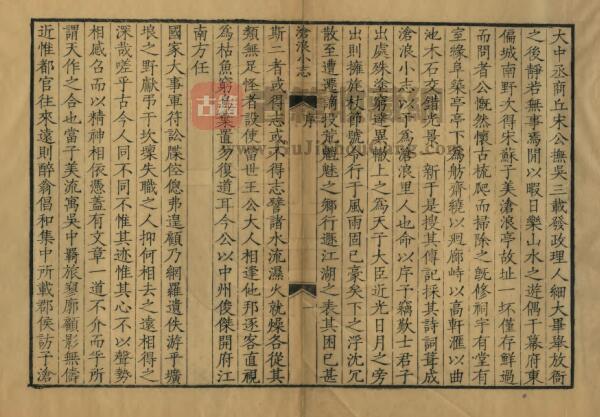 大中丞商丘宋公撫吳三載發政理人細大畢舉放衙
之後靜若無事焉閒以暇日樂山水之遊偶于幕府東
偏城南野次得宋蘇子美滄浪亭故址一坏僅存鮮過
而問者公慨然懷古梳爬而掃除之旣修祠宇有堂有
室緣阜築亭亭下為舫齋繞以廻廊峙以高軒滙以曲
池木石交錯光景一新于是搜其傳記採其詩詞葺成
滄浪小志以
為滄浪里人也命以序予竊歎士君子
出處殊塗窮達異轍上之為天子大臣近光日月之旁
出則擁旄杖節號令行于風雨固已豪矣下之浮沈冗
散至遭遷謫投荒魑魅之鄉行遯江湖之表其困已甚
滄浪小志
序
一
斯二者或得志或不得志譬諸水流濕火就燥各從其
類無足怪者設使當世王公大人相逢他邦逐客直視
為枯魚窮鳥棄置勿復道耳今公以中州俊傑開府江
南方任
國家大事軍符訟牒倥傯弗遑顧乃網羅遺佚游乎壙
埌之野獻弔于坎壈失職之人抑何相去之遠相得之
深哉嗟乎古今人同不同不惟其迹惟其心不以聲勢
相感召而以精神相依憑蓋有文章一道不介而孚所
謂天作之合也當子美流寓吳中羇旅寥廓顧影無儔
近惟都官往來遠則醉翁倡和集中所載郡侯訪子滄